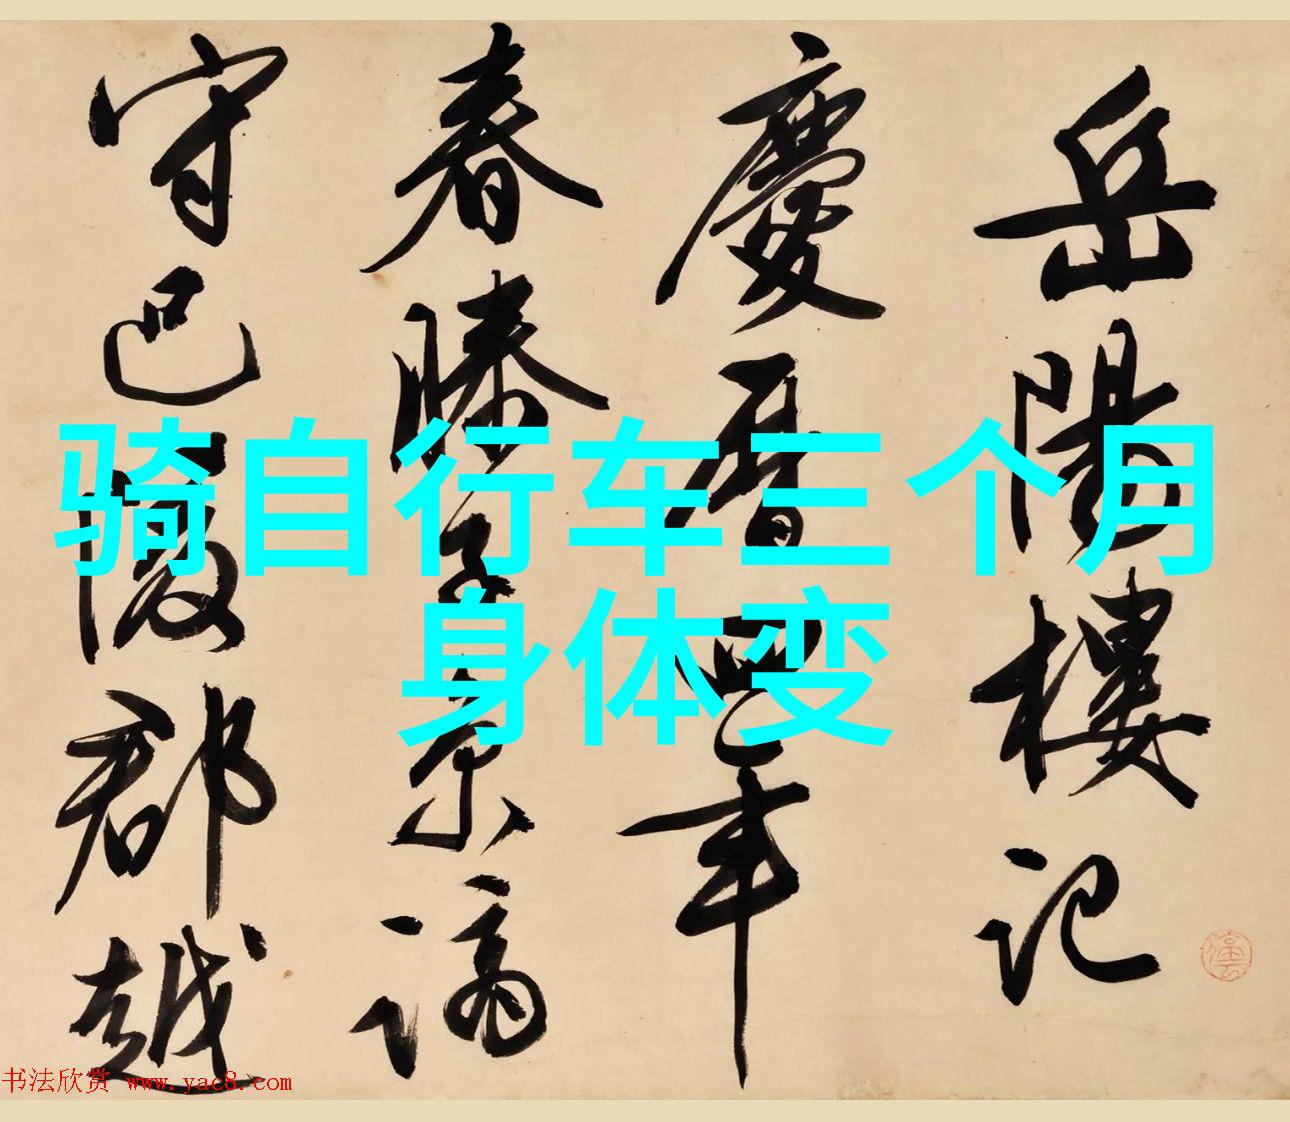 岳陽樓記
慶曆四年
春滕子京謫
守巴陵郡越
骑自行车三个月
身体变
书法欣赏 www.yac8.com